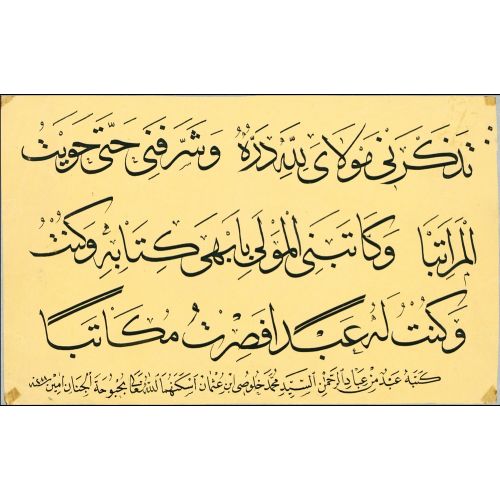 تذكرني مولاي لله دره وشرفني حتى حويت
المراتبا وكاتبني المولى بابهى كتابه وكنت
وكنت له عبدا فصرت مكاتبا
كتبه عبد من عباد الرحمن السيد محمد خلوصي ابن عثمان اسكنهما الله تعالى بحبوحة الجنان امين